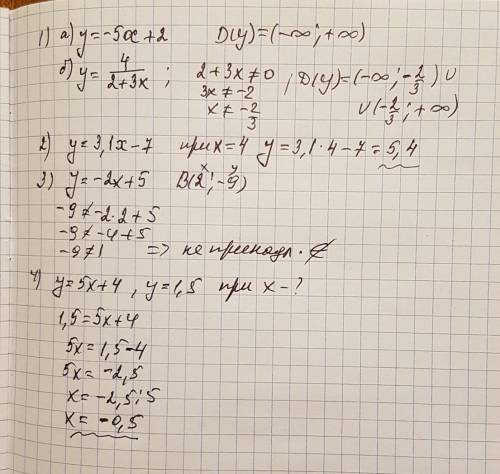 1) а) y=-5x+2 D(y)=(-∞;+∞)
б) y=4/(2+3x); 2+3x≠0; D(y)=(-∞;-2/3) ∪
3x≠-2 ∪(-2/3;+∞)
x≠-2/3
2) y=3,1x-7 при x=4 y=3,1·4-7=5,4
3) y=-2x+5 B(2;-9)
x y
-9≠-2·2+5
-9≠-4+5
-9≠1 => не принадл. ∉
4) y=5x+4, y=1,5 при x-?
1,5=5x+4
5x=1,5-4
5x=-2,5
x=-2,5:5
x=-0,5